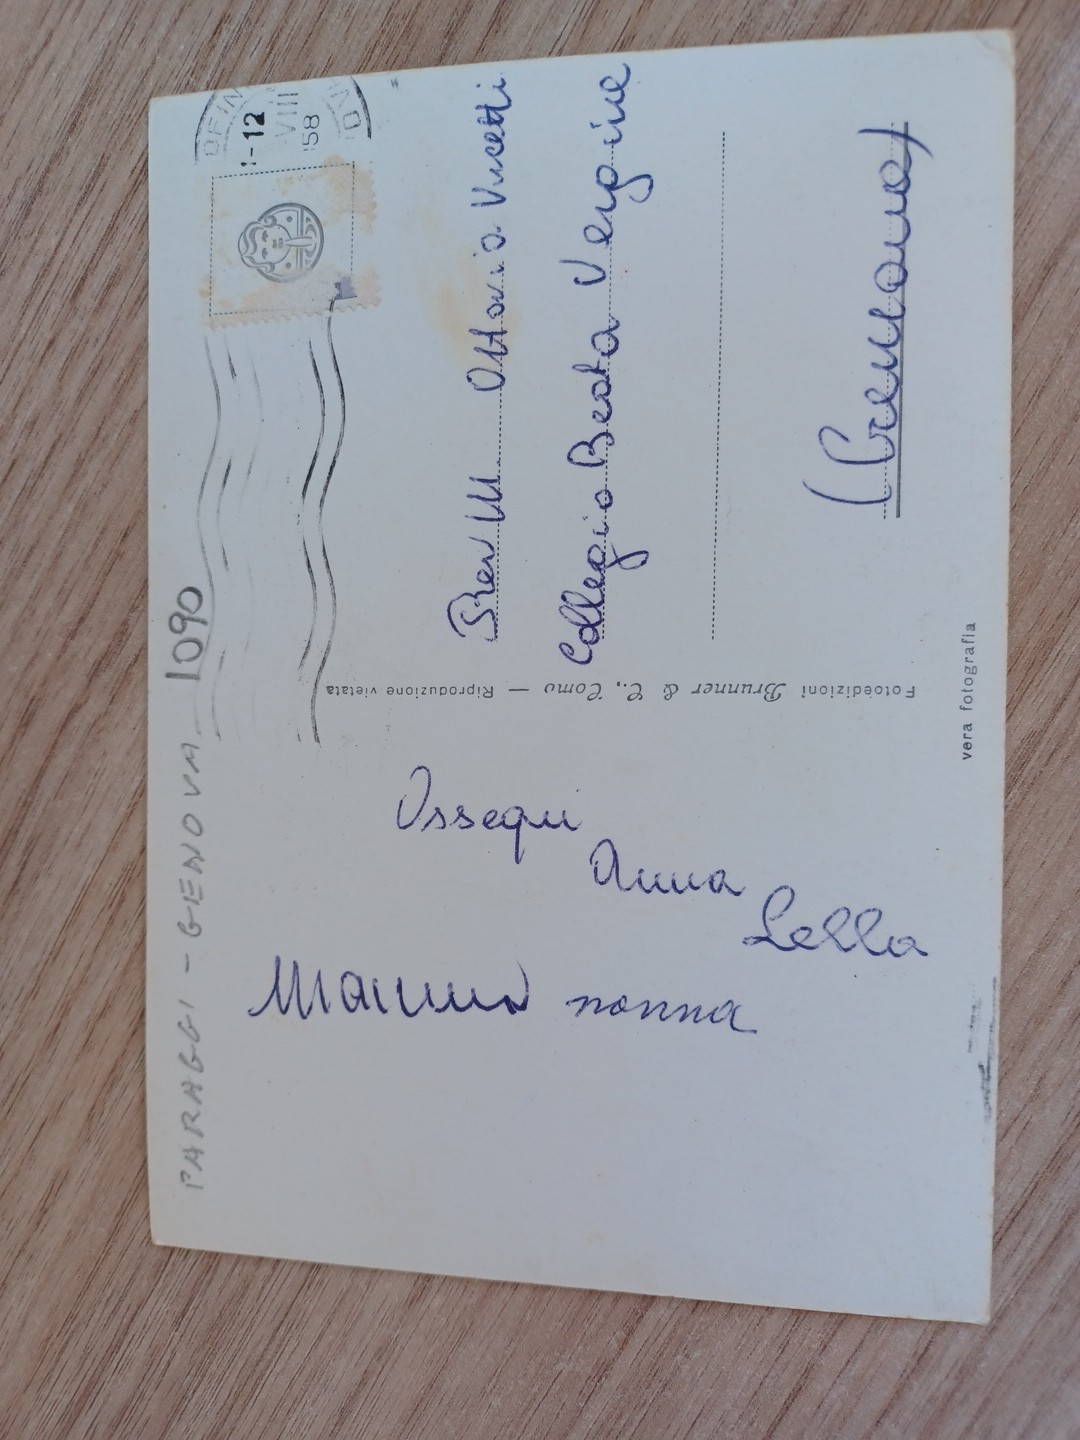 PARAGGI - GENOVA 1090
1-12
VIII
58
Ossequi
Anna
Lella
Mamma nonna
Fotoedizioni Brunner & C., Como — Riproduzione vietata
Rev M. Ottavia
Collegio Beata Vergine
(Cremona)
vera fotografia